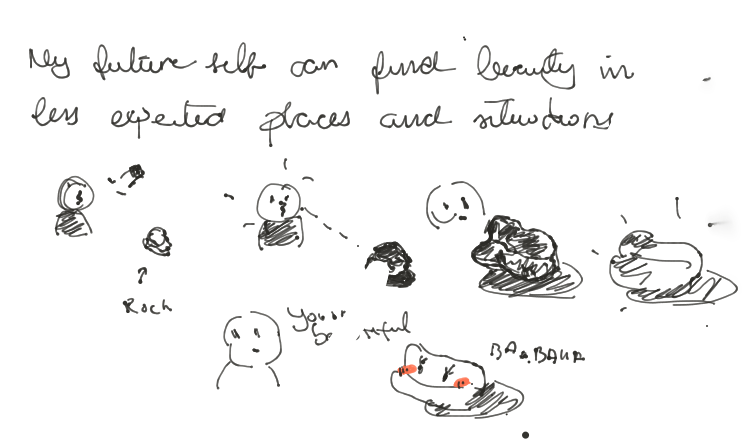 My future self can find beauty in
less expected places and situations
Rock
You're